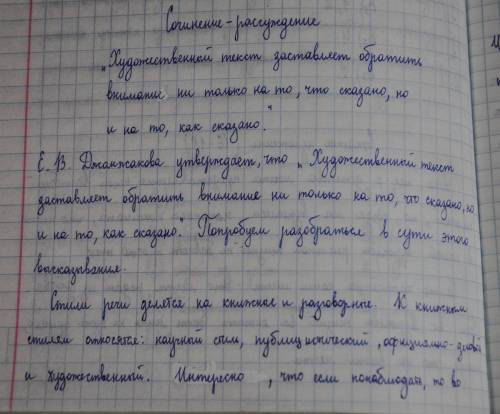 Сочинение-рассуждение
„Художественный текст заставляет обратить
внимание ни только на то, что сказано, но
и на то, как сказано."
Е. В. Джанжакова утверждает, что „Художественный текст
заставляет обратить внимание ни только на то, что сказано, но
и на то, как сказано." Попробуем разобраться в сути этого
высказывания.
Стили речи делятся на книжные и разговорные. К книжным
стилям относятся: научный стиль, публицистический, официально-деловой
и художественный. Интересно, что если понаблюдать, то во